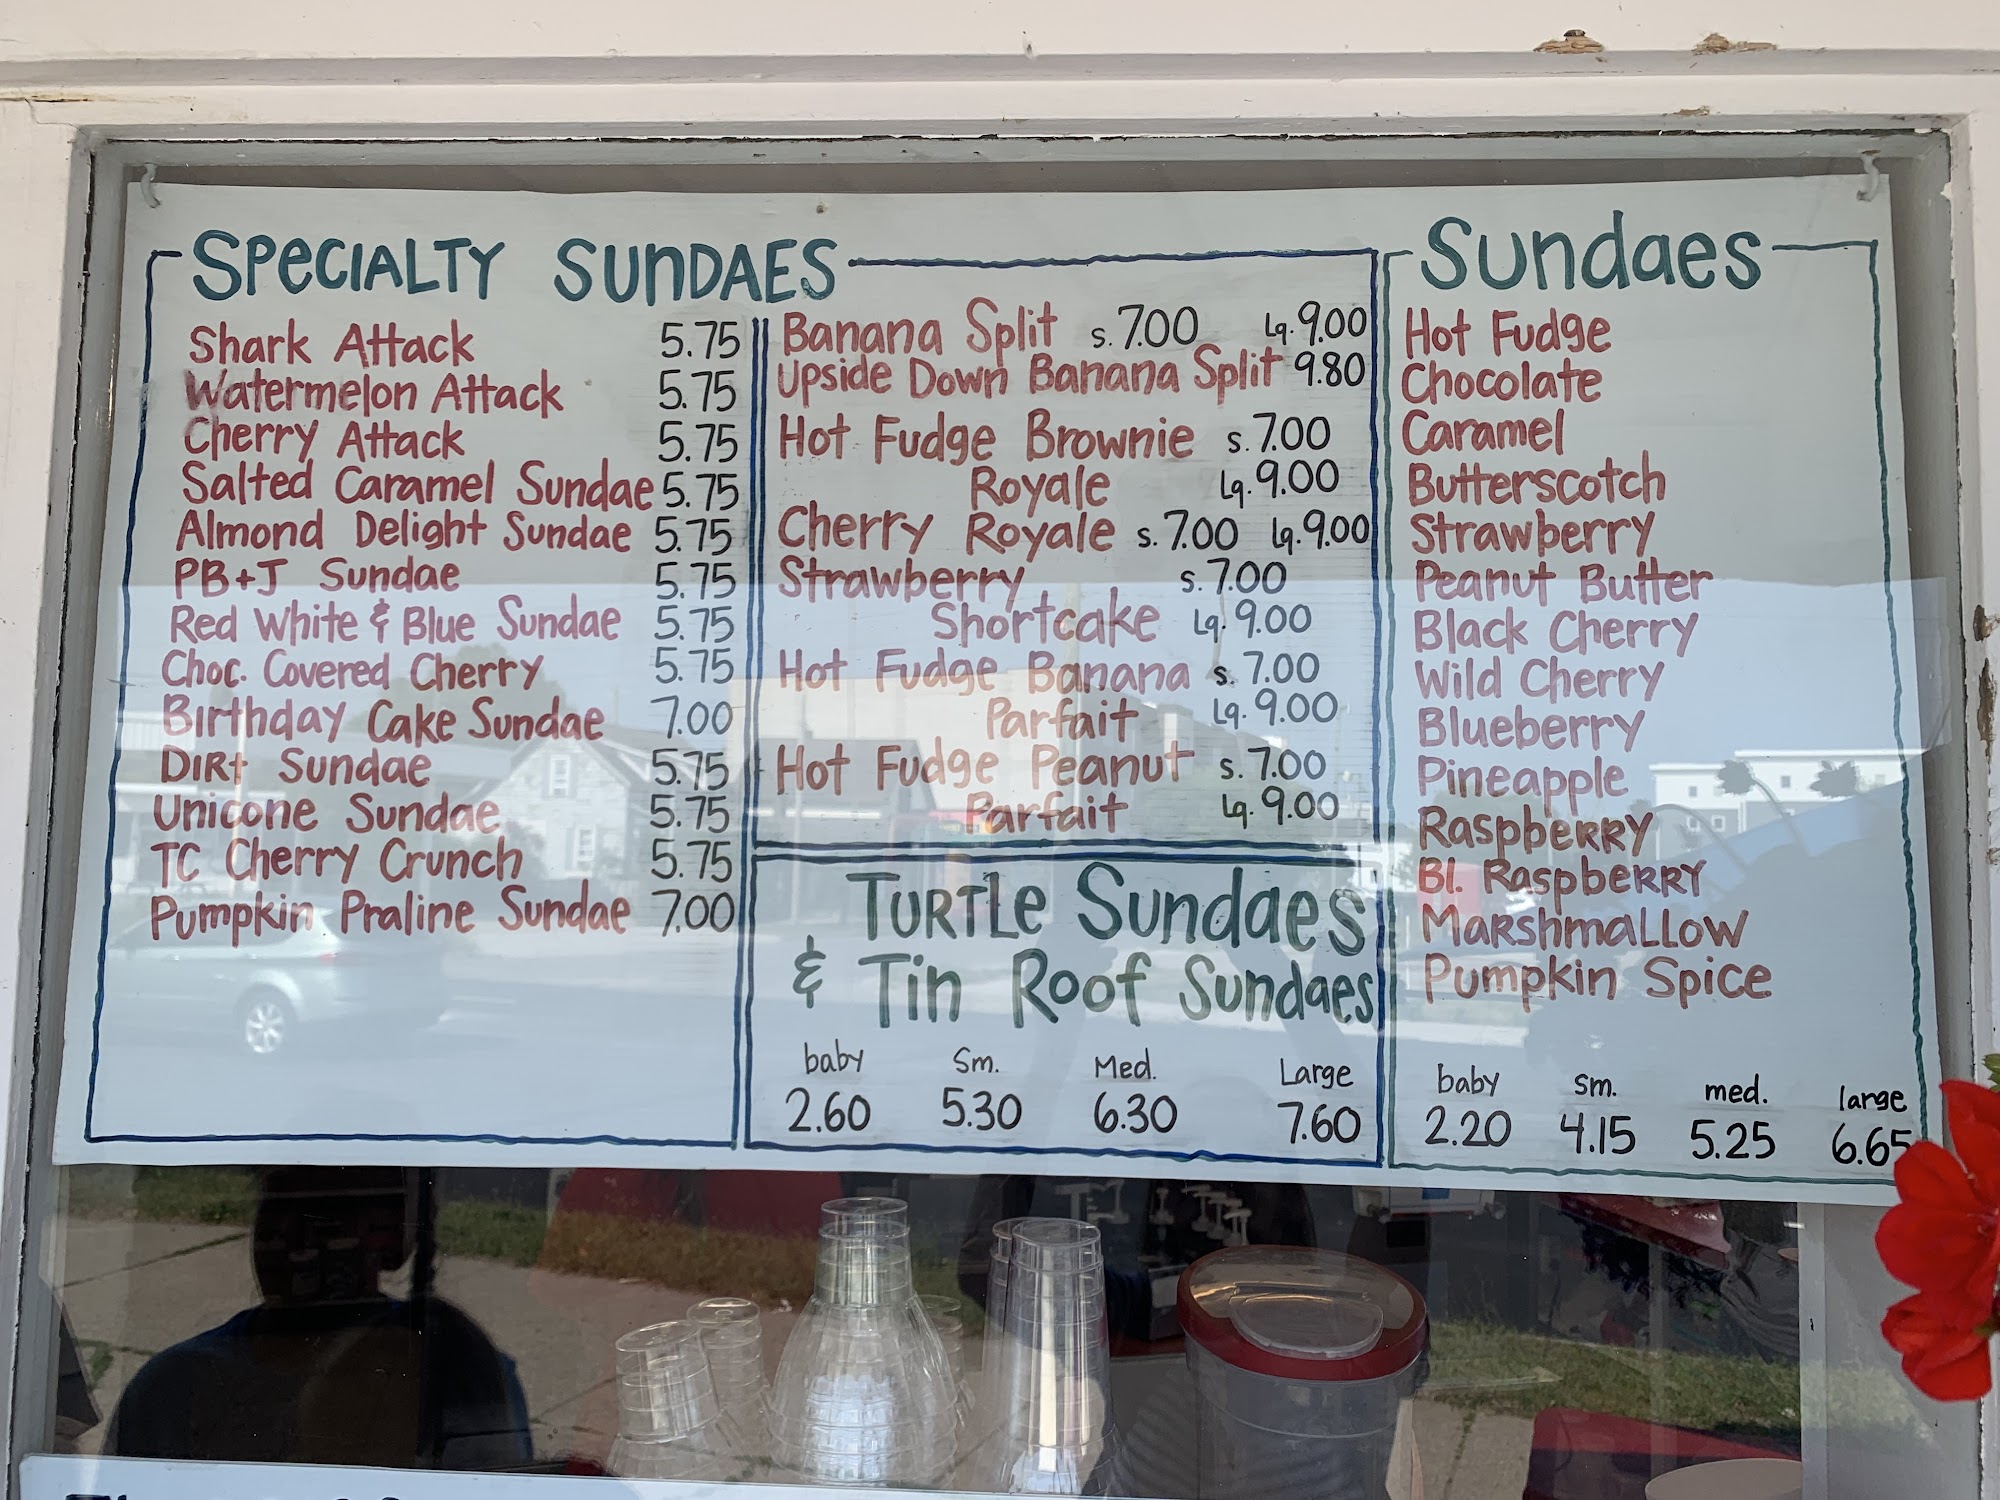 SPECIALTY SUNDAES
Shark Attack 5.75
Watermelon Attack 5.75
Cherry Attack 5.75
Salted Caramel Sundae 5.75
Almond Delight Sundae 5.75
PB+J Sundae 5.75
Red White & Blue Sundae 5.75
Choc. Covered Cherry 5.75
Birthday Cake Sundae 7.00
DIRt Sundae 5.75
Unicone Sundae 5.75
TC Cherry Crunch 5.75
Pumpkin Praline Sundae 7.00
Banana Split s. 7.00 Lg. 9.00
Upside Down Banana Split 9.80
Hot Fudge Brownie s. 7.00
Royale Lg. 9.00
Cherry Royale s. 7.00 Lg. 9.00
Strawberry s. 7.00
Shortcake Lg. 9.00
Hot Fudge Banana s. 7.00
Parfait Lg. 9.00
Hot Fudge Peanut s. 7.00
Parfait Lg. 9.00
TURTLe Sundaes
& Tin Roof Sundaes
baby Sm. Med. Large
2.60 5.30 6.30 7.60
Sundaes
Hot Fudge
Chocolate
Caramel
Butterscotch
Strawberry
Peanut Butter
Black Cherry
Wild Cherry
Blueberry
Pineapple
RaspbeRRY
Bl. RaspbeRRY
MaRshmaLLOW
Pumpkin Spice
baby sm. med. large
2.20 4.15 5.25 6.65